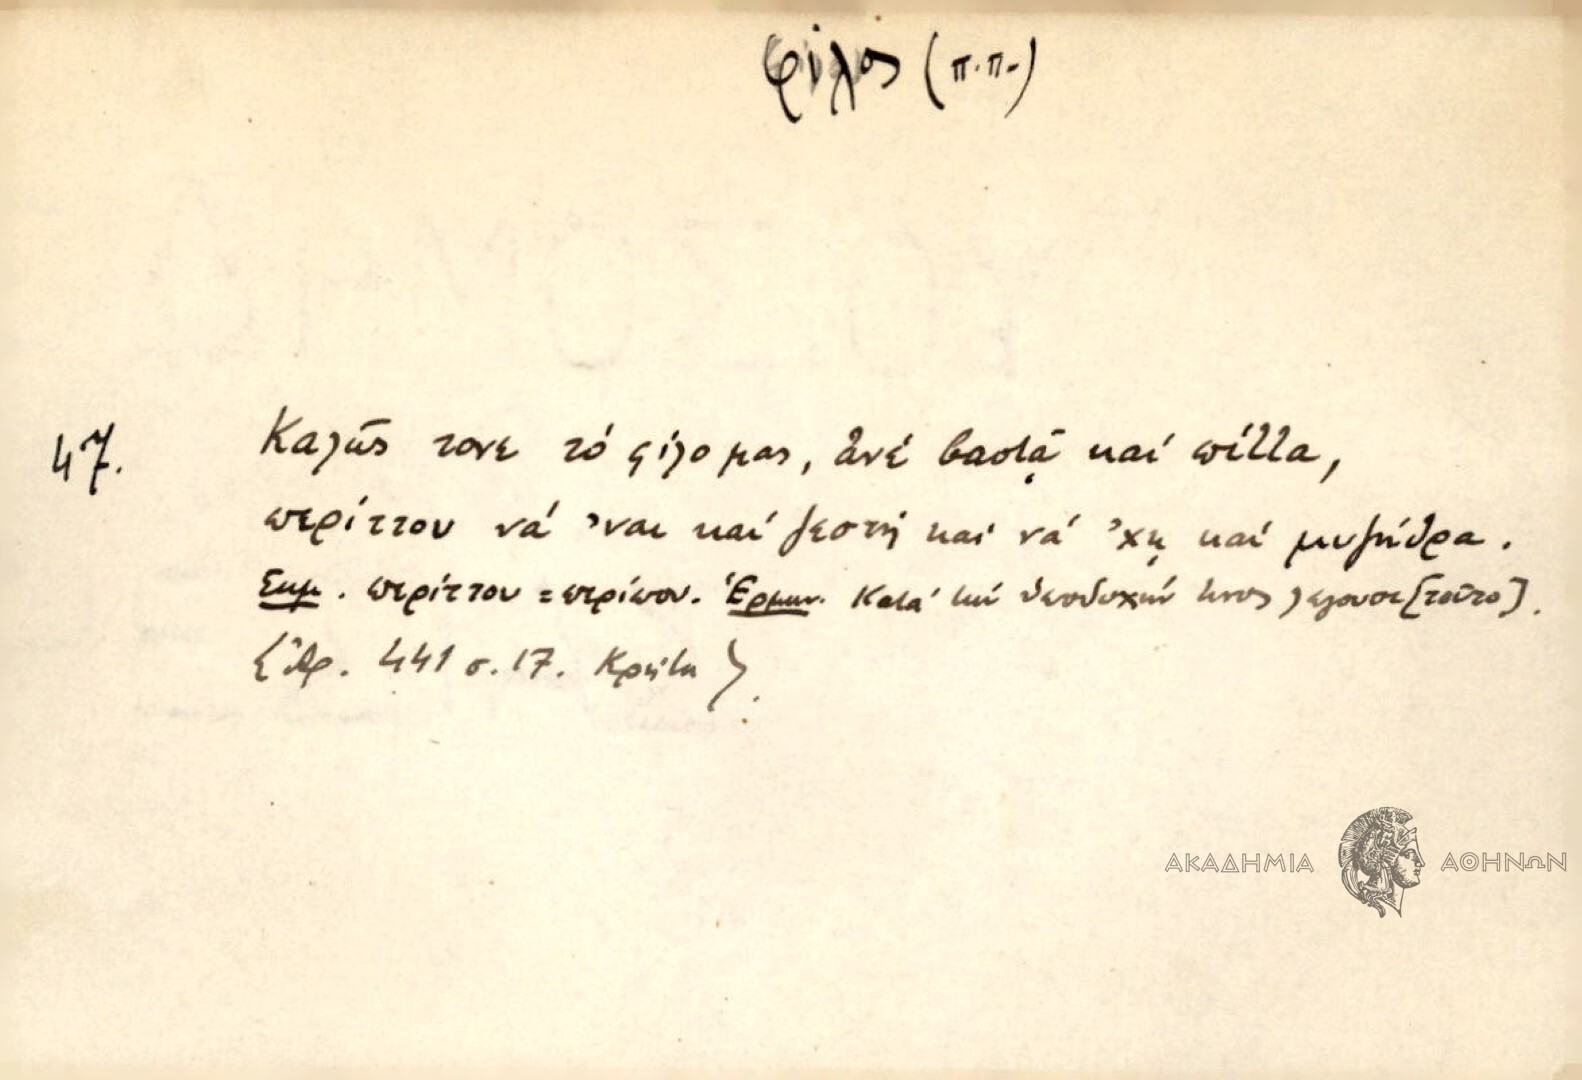 φίλος (π.π.)
47. Καλῶς τονε τό φίλο μας, ἀνέ βαστᾷ καί πίττα,
περίττου νά 'ναι καί ζεστή καί νά 'χῃ καί μυζήθρα.
Σημ. περίττου = περίπου. Ἑρμην. Κατά τήν ὑποδοχήν τινος λέγουσι [τοῦτο].
{Ἀρ. 441 σ. 17. Κρήτη}.
ΑΚΑΔΗΜΙΑ ΑΘΗΝΩΝ